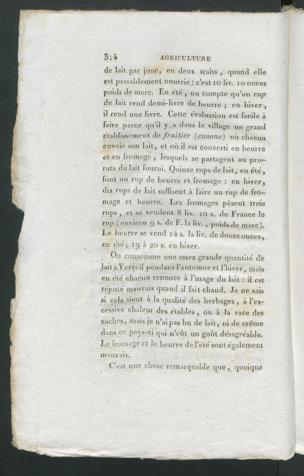 324 AGRICULTURE
de lait par jour, en deux traits, quand elle
est passablement nourrie; c'est 10 liv. 10 onces
poids de marc. En été, on compte qu'un rup
de lait rend demi-livre de beurre; en hiver,
il rend une livre. Cette évaluation est facile à
faire parce qu'il y a dans le village un grand
établissement de fruitier (casone) où chacun
envoie son lait, et où il est converti en beurre
et en fromage, lesquels se partagent au pro-
rata du lait fourni. Quinze rups de lait, en été,
font un rup de beurre et fromage: en hiver,
dix rups de lait suffisent à faire un rup de fro-
mage et beurre. Les fromages pèsent trois
rups, et se vendent 8 liv. 10 s. de France le
rup (environ 9 s. de F. la liv., poids de marc).
Le beurre se vend 14 s. la liv. de douze onces,
en été; 19 à 20 s. en hiver.
On consomme une assez grande quantité de
lait à Verceil pendant l'automne et l'hiver, mais
en été chacun renonce à l'usage du lait: il est
réputé mauvais quand il fait chaud. Je ne sais
si cela tient à la qualité des herbages, à l'ex-
cessive chaleur des étables, ou à la race des
vaches, mais je n'ai pas bu de lait, ni de crême
dans ce pays-ci qui n'eût un goût désagréable.
Le fromage et le beurre de l'été sont également
mauvais.
C'est une chose remarquable que, quoique